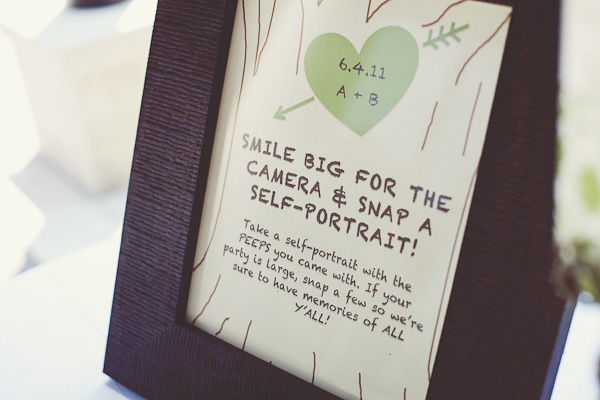 6.4.11
A + B
SMILE BIG FOR THE
CAMERA & SNAP A
SELF-PORTRAIT!
Take a self-portrait with the
PEEPS you came with. If your
party is large, snap a few so we're
sure to have memories of ALL
Y'ALL!